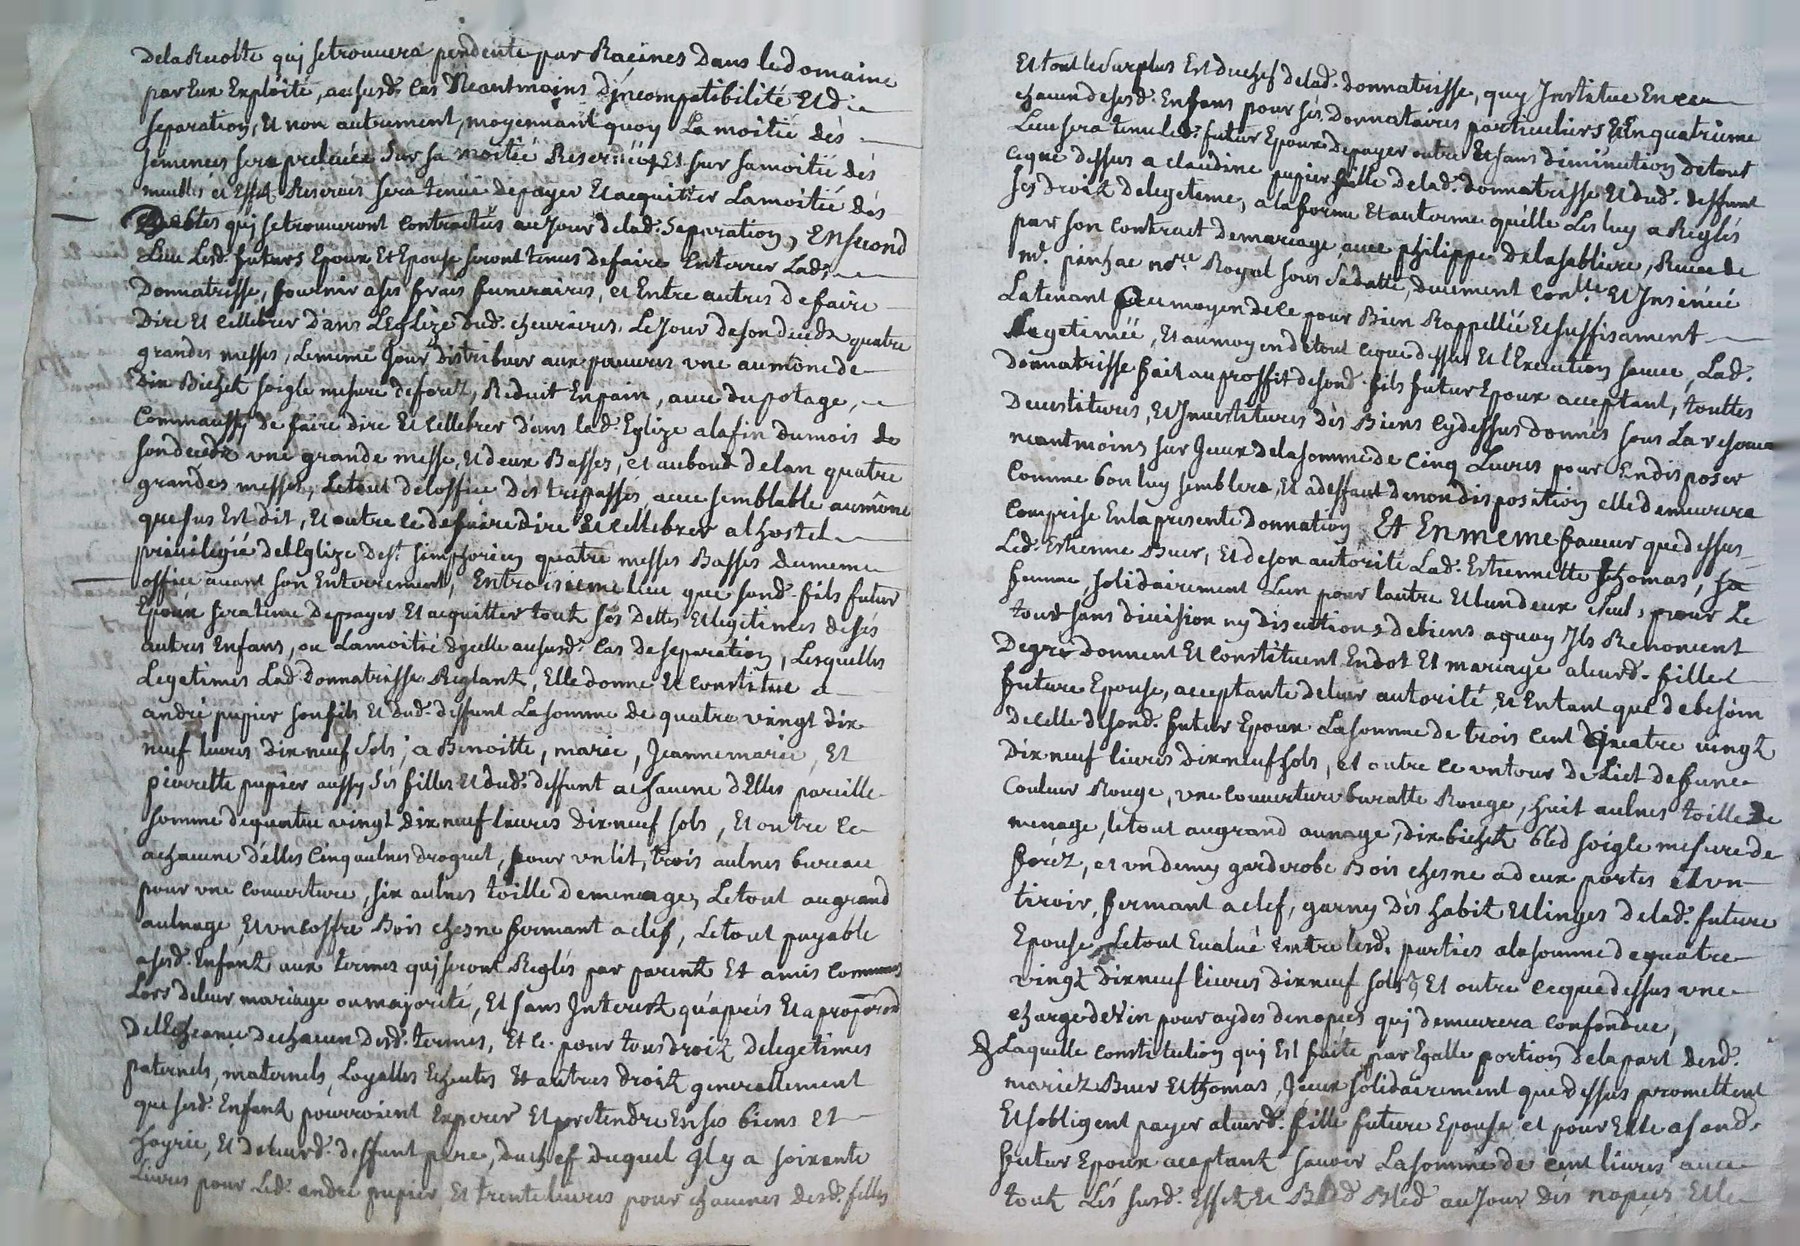 dela Recolte quj setrouuera pendente par Racines Dans le domaine
par Eux Exploité, au susd. Cas Neantmoins d'jncompatibilité Et de
separation, Et non autrement, moyennant quoy La moitié dés
semences sera preleuée sur sa moitié Reseruée, Et sur sa moitié dés
meubles et Effet Reserués sera tenüe depayer Et acquitter La moitié dés
Debtes quj setrouueront contractéés au Jour delad. Separation, En second
Lieu Lesd. futurs Epoux Et Epouse seront tenus defaire Enterrer Lad.
Donnatrisse, fournir a ses frais funeraires, et Entre autres de faire
Dire Et Cellebrer dans L'Eglize dud. cheurieres, Le Jour de son decedz quatre
grandes messes, Le meme Jour distribuer aux pauures vne aumône de
Dix Bichet soigle mesure deforéz, Reduit En pain, auec du potage,
Comm'aussy de faire dire Et Cellebrer dans lad. Eglize ala fin du mois de
son decedz vne grande messe, Et deux Basses, et au bout de lan quatre
grandes messes, Le tout de l'office dés trépassés, auec semblable aumône
que sus Est dit, Et outre ce de faire dire Et Cellebrer al'hostel
priuilegié del'Eglize de St. Simphorien quatre messes Basses du meme
office auant son Enterrement, En troisieme lieu que sond. fils futur
Epoux sera tenu depayer Et acquitter tout sés Dettes Et legitimes de sés
autres Enfans, ou La moitié d'jcelle au susd. Cas de separation, Lesquelles
Legetimes Lad. Donnatrisse Reglant, Elle donne Et constitüe a
andré pupier son fils Et dud. deffunt La somme de quatre vingt dix
neuf liures dix neuf sols, a Benoitte, marie, Jeanne marie, Et
pierrette pupier aussy sés filles Et dud. deffunt a chacune d'Elles pareille
somme dequatre vingt dix neuf liures dix neuf sols, Et outre ce
a chacune d'elles Cinq aulnes droguet, pour vn lit, trois aulnes bureau
pour vne couuerture, six aulnes toille de menage, Le tout au grand
aulnage, Et vn coffre Bois chesne fermant a clef, Le tout payable
a sesd. Enfant aux termes quj seront Reglés par parent Et amis communs
Lors de leur mariage ou majorité, Et sans Jnterest qu'aprés Et a proportion
del'Echeance de chacun desd. termes, Et ce pour tous droit delegetimes
paternels, maternels, Loyalles Echeutes Et autres droit generallement
que sesd. Enfant pourroient Esperer Et pretendre En ses biens et
hoyrie, Et de leurd. deffunt pere, du chef duquel Jl y a soixante
Liures pour Led. andré pupier Et trente liures pour chacunes desd. filles
Et tout le surplus Est du chef delad. donnatrisse, quy Institue En ce
chacun desesd. Enfans pour sés donnataires particuliers Et En quatrieme
Lieu sera tenu Led. futur Epoux depayer outre Et sans diminution de tout
ceque dessus a claudine pupier fille delad. donnatrisse Et dud. deffunt
ses droit delegeteme, a la forme Et au terme quélle Les luy a Reglés
par son contract demariage, auec philippe de la sabliere, Receu de
Me. pinhac nore. Royal sous sa datte, duement conlle. Et Insinüé
La tenant au moyen de ce pour Bien Rappellée Et suffisament
Legetimée, Et au moyen de tout ceque dessus Et l'Execution sauue, Lad.
donnatrisse fait au proffit desond. fils futur Epoux acceptant, touttes
Deuestitures, Et Inuestitures dés Biens Cy dessus donnés sous La reserue
neantmoins sur Jceux de la somme de Cinq Liures pour En disposer
Comme bon luy semblera, Et a deffaut de non disposition elle demeurera
Comprise En la presente donnation Et En meme faueur que dessus
Led. Estienne Buer, Et de son autorité Lad. Estiennette thomas, sa
femme, solidairement L'un pour lautre Et lun deux seul, pour Le
tout sans diuision ny discution de biens a quoy Jls Renoncent
De gré donnent Et constituent En dot Et mariage a leurd. fille
future Epouse, acceptante de leur autorité, Et En tant que de besoin
de celle desond. futur Epoux La somme de trois cent quatre vingt
Dix neuf liures dix neuf sols, et outre ce vn tour de Lict de fune
Couleur Rouge, vne couuerture buratte Rouge, huit aulnes toille de
menage, le tout au grand aunage, dix bichet bled soigle mesure de
foréz, et vn demy garderobe Bois chesne a deux portes et vn
tiroir, fermant a clef, garny dés habit Et linges delad. future
Epouse Le tout Eualué Entre lesd. parties a la somme de quatre
vingt dix neuf liures dix neuf sols, Et outre ceque dessus vne
charge de vin pour aydes de nopces quj demeurera confondüe,
Laquelle constitution quj Est faite par Egalle portion de la part desd.
mariez Buer Et thomas, Jceux solidairement que dessus promettent
Et sobligent payer a leurd. fille future Epouse et pour Elle a sond.
futur Epoux aceptant sauoir La somme de cent liures auec
tout Lés susd. Effet Et Bled au Jour dés nopces Et le